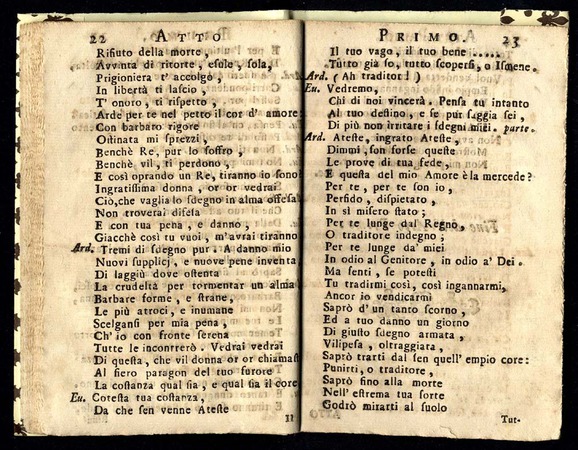 22 ATTO
Rifiuto della morte,
Avvinta di ritorte, esule, sola,
Prigioniera t' accolgo,
In libertà ti lascio,
T' onoro, ti rispetto,
Arde per te nel petto il cor d' amore
Con barbaro rigore
Ostinata mi sprezzi,
Benchè Re, pur lo soffro,
Benchè vil, ti perdono,
E così oprando un Re, tiranno io sono?
Ingratissima donna, or or vedrai
Ciò, che vaglia lo sdegno in alma offesa
Non troverai difesa
E con tua pena, e danno,
Giacchè così tu vuoi, m'avrai tiranno
Ard. Tremi di sdegno pur. A danno mio
Nuovi supplicj, e nuove pene inventa
Di laggiù dove ostenta
La crudeltà per tormentar un alma
Barbare forme, e strane,
Le più atroci, e inumane
Scelgansi per mia pena,
Ch' io con fronte serena
Tutte le incontrerò. Vedrai vedrai
Di questa, che vil donna or or chiamast
Al fiero paragon del tuo furore
La costanza qual sia, e qual sia il core
Eu. Cotesta tua costanza,
Da che sen venne Ateste
Il
PRIMO. 23
Il tuo vago, il tuo bene .....
Tutto già so, tutto scopersi, o Ismene.
Ard. (Ah traditor!)
Eu. Vedremo,
Chi di noi vincerà. Pensa tu intanto
Al tuo destino, e se pur saggia sei,
Di più non irritare i sdegni miei. parte.
Ard. Ateste, ingrato Ateste,
Dimmi, son forse queste
Le prove di tua fede,
E questa del mio Amore è la mercede?
Per te, per te son io,
Perfido, dispietato,
In sì misero stato;
Per te lunge dal Regno,
O traditore indegno;
Per te lunge da' miei
In odio al Genitore, in odio a' Dei.
Ma senti, se potesti
Tu tradirmi così, così ingannarmi,
Ancor io vendicarmi
Saprò d' un tanto scorno,
Ed a tuo danno un giorno
Di giusto sdegno armata,
Vilipesa, oltraggiata,
Saprò trarti dal sen quell' empio core:
Punirti, o traditore,
Saprò fino alla morte
Nell' estrema tua sorte
Godrò mirarti al suolo
Tut-